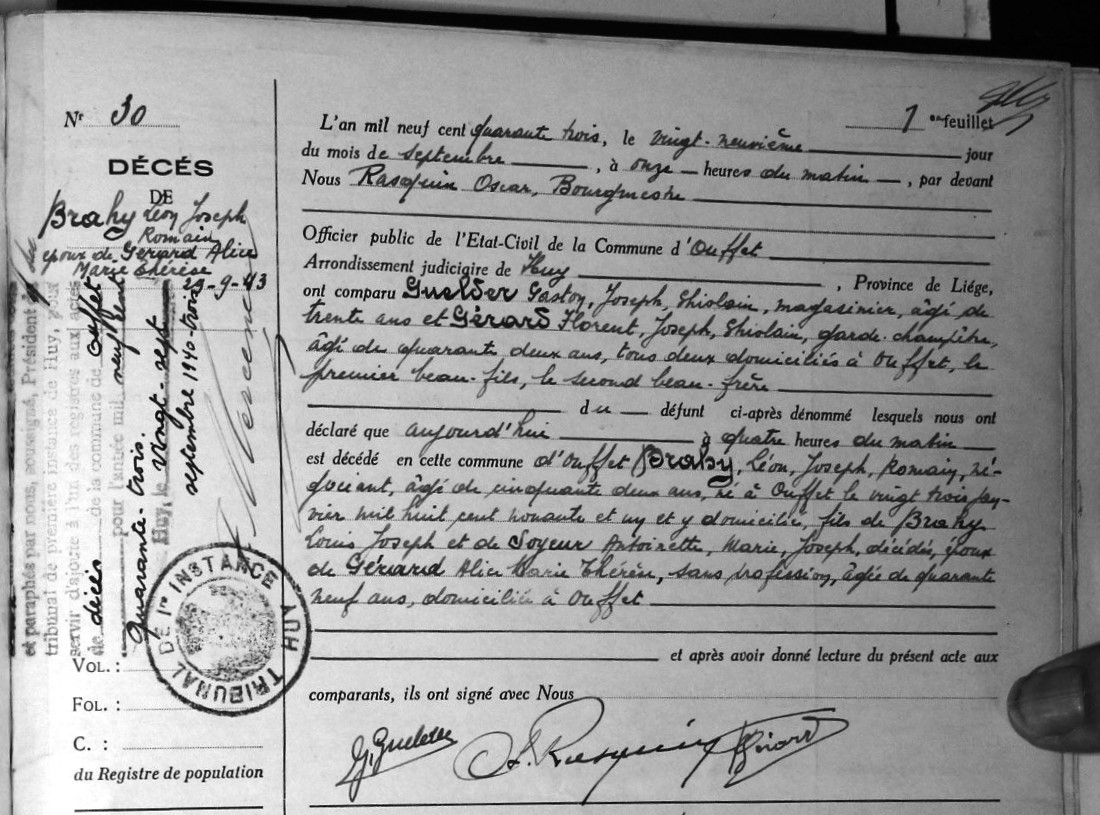 Nr 30
DÉCÈS
DE
Brahy Léon Joseph
Romain
époux de Gérard Alice
Marie Thérèse
29-9-43
et paraphés par nous, soussigné, Président du
tribunal de première instance de Huy, pour
servir d'ajoute à l'un des registres aux actes
de décès de la commune de Ouffet
pour l'année mil neuf cent
quarante-trois.
Huy, le vingt-sept
septembre 1940-trois
TRIBUNAL DE 1re INSTANCE HUY
VOL. :
FOL. :
C. :
du Registre de population
1 en feuillet
L'an mil neuf cent quarante trois, le vingt-neuvième jour
du mois de septembre, à onze heures du matin, par devant
Nous Rasquin Oscar, Bourgmestre
Officier public de l'Etat-Civil de la Commune d'Ouffet
Arrondissement judiciaire de Huy, Province de Liége,
ont comparu Guelder Gaston, Joseph, Ghislain, magasinier, âgé de
trente ans et Gérard Florent, Joseph, Ghislain, garde-champêtre,
âgé de quarante deux ans, tous deux domiciliés à Ouffet, le
premier beau-fils, le second beau-frère
du défunt ci-après dénommé lesquels nous ont
déclaré que aujourd'hui à quatre heures du matin
est décédé en cette commune d'Ouffet Brahy, Léon, Joseph, Romain, né-
gociant, âgé de cinquante deux ans, né à Ouffet le vingt trois jan-
vier mil huit cent nonante et un et y domicilié, fils de Brahy
Louis Joseph et de Soyeur Antoinette, Marie, Joseph, décédés, époux
de Gérard Alice Marie Thérèse, sans profession, âgée de quarante
neuf ans, domiciliée à Ouffet
et après avoir donné lecture du présent acte aux
comparants, ils ont signé avec Nous
G. Guelder Rasquin Gérard